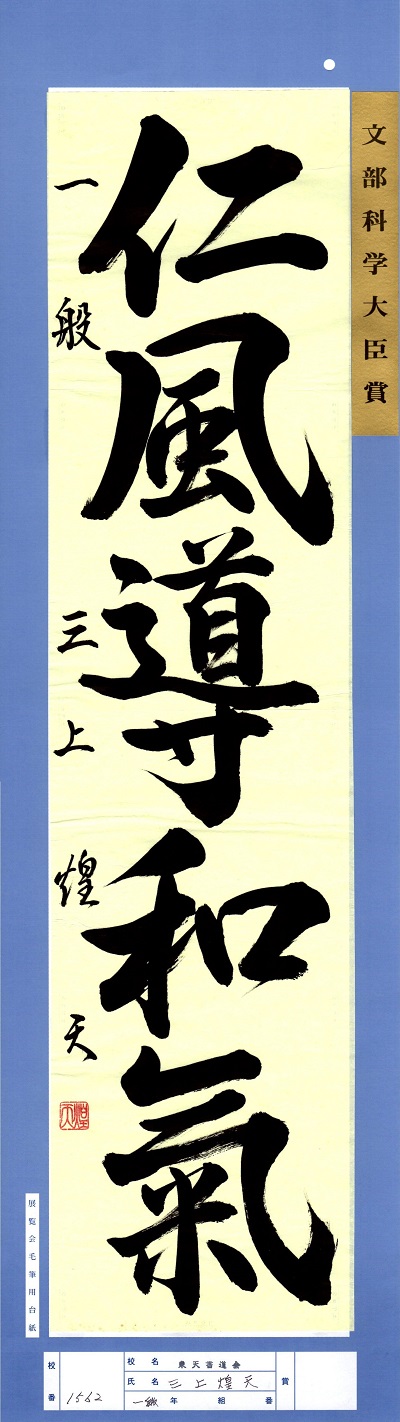 文部科学大臣賞
仁風導和氣
一般 三上煌天
煌天
展覧会毛筆用台紙
校番 1562
校名 東天書道会
氏名 三上煌天
一般 年 組 番
賞